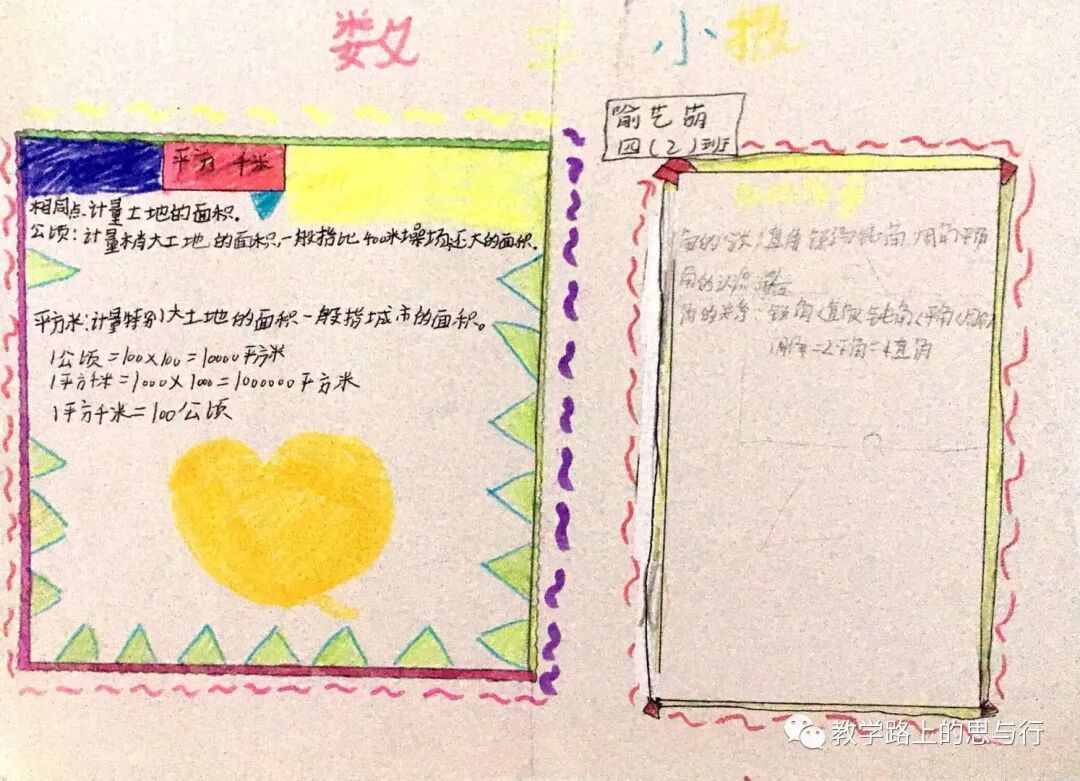 数学小报
喻艺萌
四(2)班
平方千米
相同点计量土地的面积。
公顷:计量稍大土地的面积一般指比400米操场还大的面积。
平方米:计量特别大土地的面积一般指城市的面积。
1公顷=100×100=10000平方米
1平方千米=1000×1000=1000000平方米
1平方千米=100公顷
角的分类:直角 锐角 钝角 周角 平角
角的认识
角的关系:锐角<直角<钝角<平角<周角
1周角=2平角=4直角
教学路上的思与行